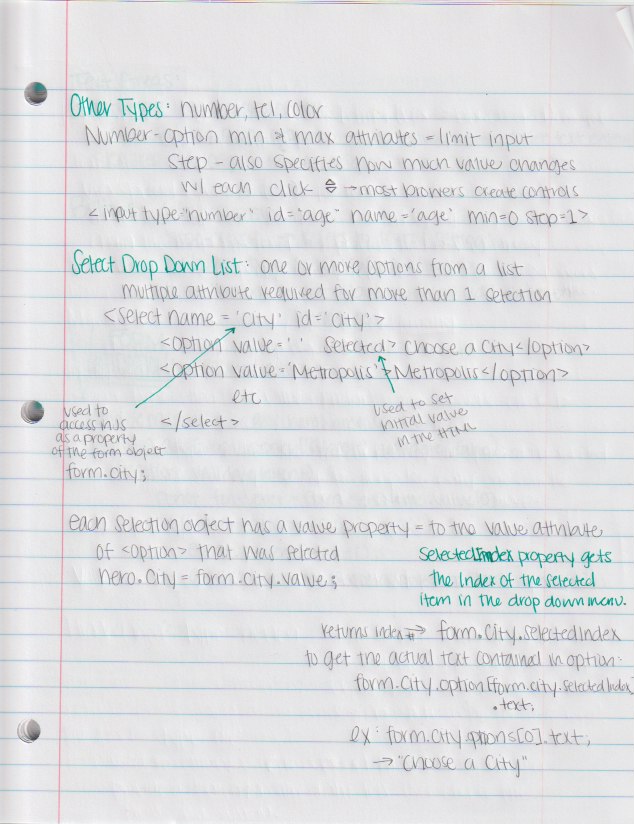 Other Types: number, tel, color
Number - option min & max attributes = limit input
Step - also specifies how much value changes
w/ each click → most browers create controls
<input type="number" id="age" name='age' min=0 step=1>
Select Drop Down List: one or more options from a list
multiple attribute required for more than 1 selection
<select name='City' id='City'>
<option value=' ' Selected> Choose a City</option>
<option value='Metropolis'>Metropolis</option>
etc
</select>
used to
access in JS
as a property
of the form object
form.city;
used to set
initial value
in the HTML
each selection object has a value property = to the value attribute
of <option> that was selected
hero.city = form.city.value;
SelectedIndex property gets
the index of the selected
item in the drop down menu.
returns index → form.City.selectedIndex
to get the actual text contained in option:
form.City.option[form.city.selectedIndex]
.text;
ex: form.city.options[0].text;
→ "Choose a City"